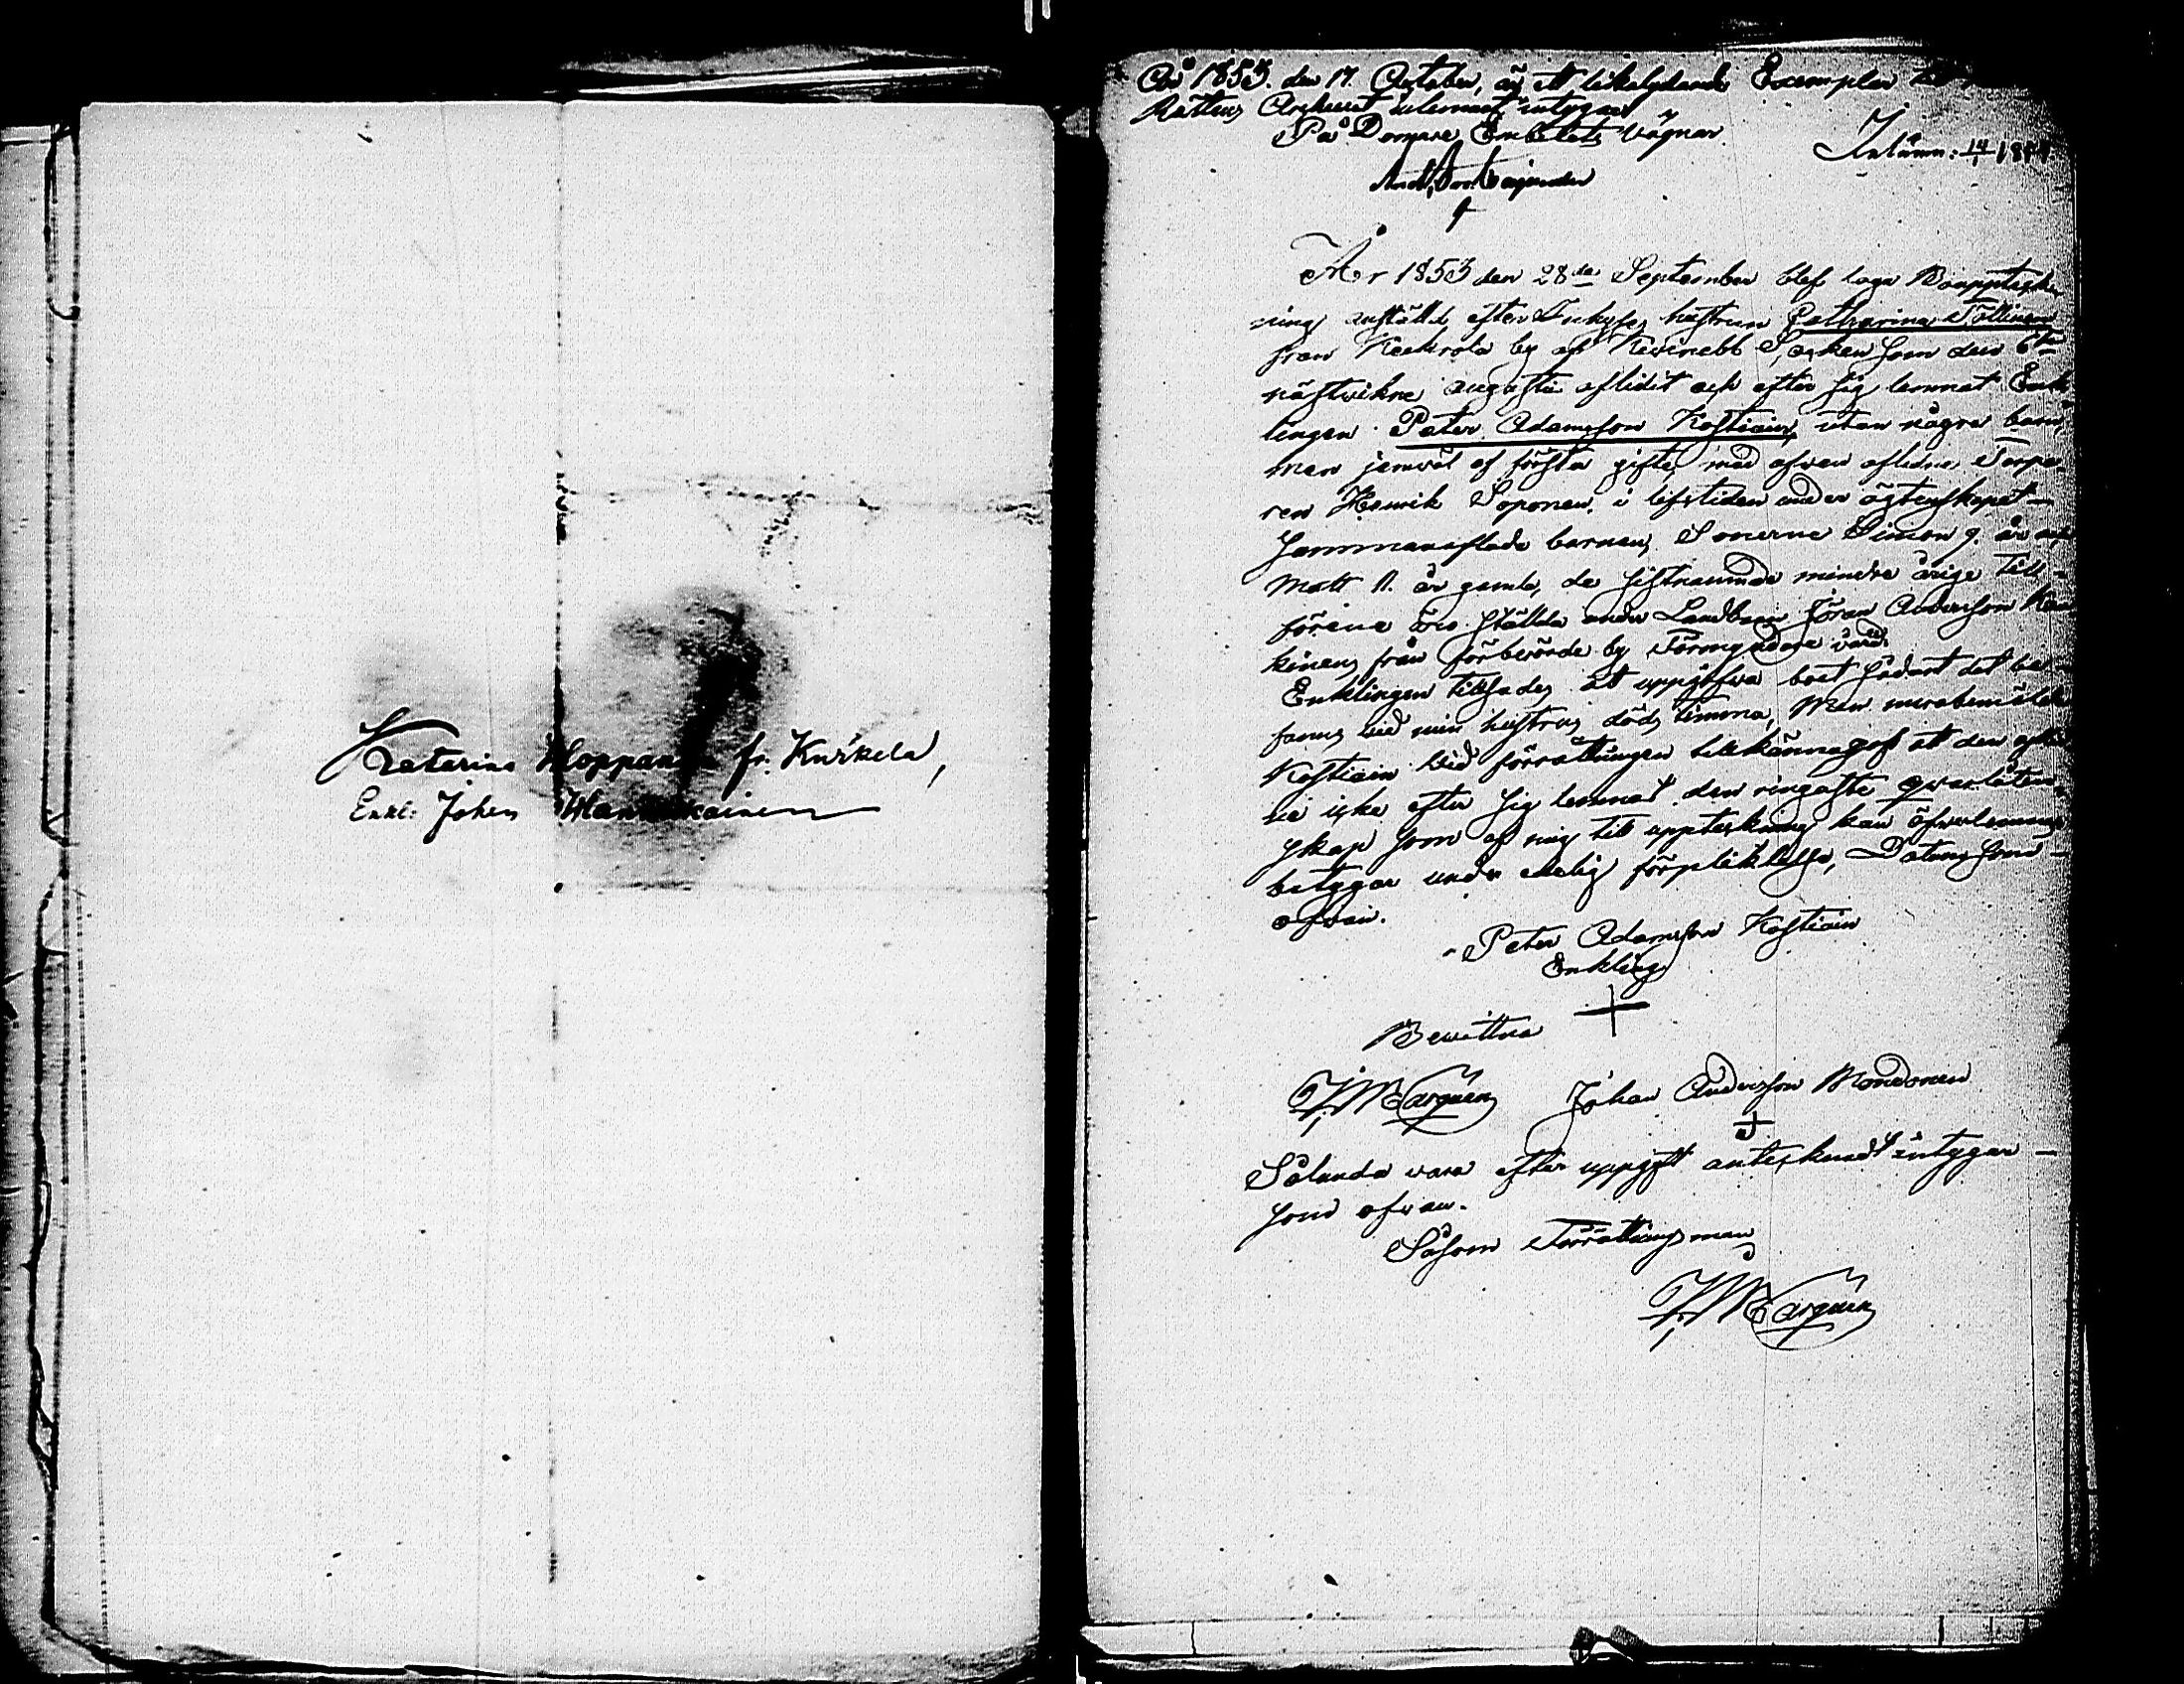 Katarina Hoppan fr. Kurkela,
Enkl: Johan
År 1853. den 17. October, är ett likalydande Exemplar
Rättens Archivet inlemnat intygar
På Domare Embetets vägnar
Inlämn: 14/1 18
År 1853 den 28de September blef laga Bouppteck
ning anställd efter hustrun Catharina
från by af Kevinebb Socken som den 6te
nästvikne augusti aflidit och efter sig lemnat Enk
lingen Peter Adamsson Kostiain, utan några barn,
men jemväl af första gifte med ofvan aflidne Torpa
ren Henrik Soponen, i lifstiden under ägtenskapet
sammanaflade barnen, Sönerne Simon 9. år och
Matt 11. år gamla, de sistnämnde mindre årige till
förene äro ställda under Landbon Jöran Andersson
kinens från förberörde by Förmyndare vård.
Enklingen tillsades at uppgifva boet sådant det be
fanns vid min hustrus döds timma, Men merabemälte
Kostiain vid förrättningen tillkännagaf at den
icke efter sig lemnat den ringaste qvarlåten
skap som af mig till uppteckning kan öfverlemnas
betygar under edelig förpliktelse, Datum som
ofvan.
Peter Adamsson Kostiain
Enkling
Bevittna
Johan Andersson Mondonen
Sålunda vara efter uppgift antecknadt intygar
som ofvan.
Såsom Förrättningsman